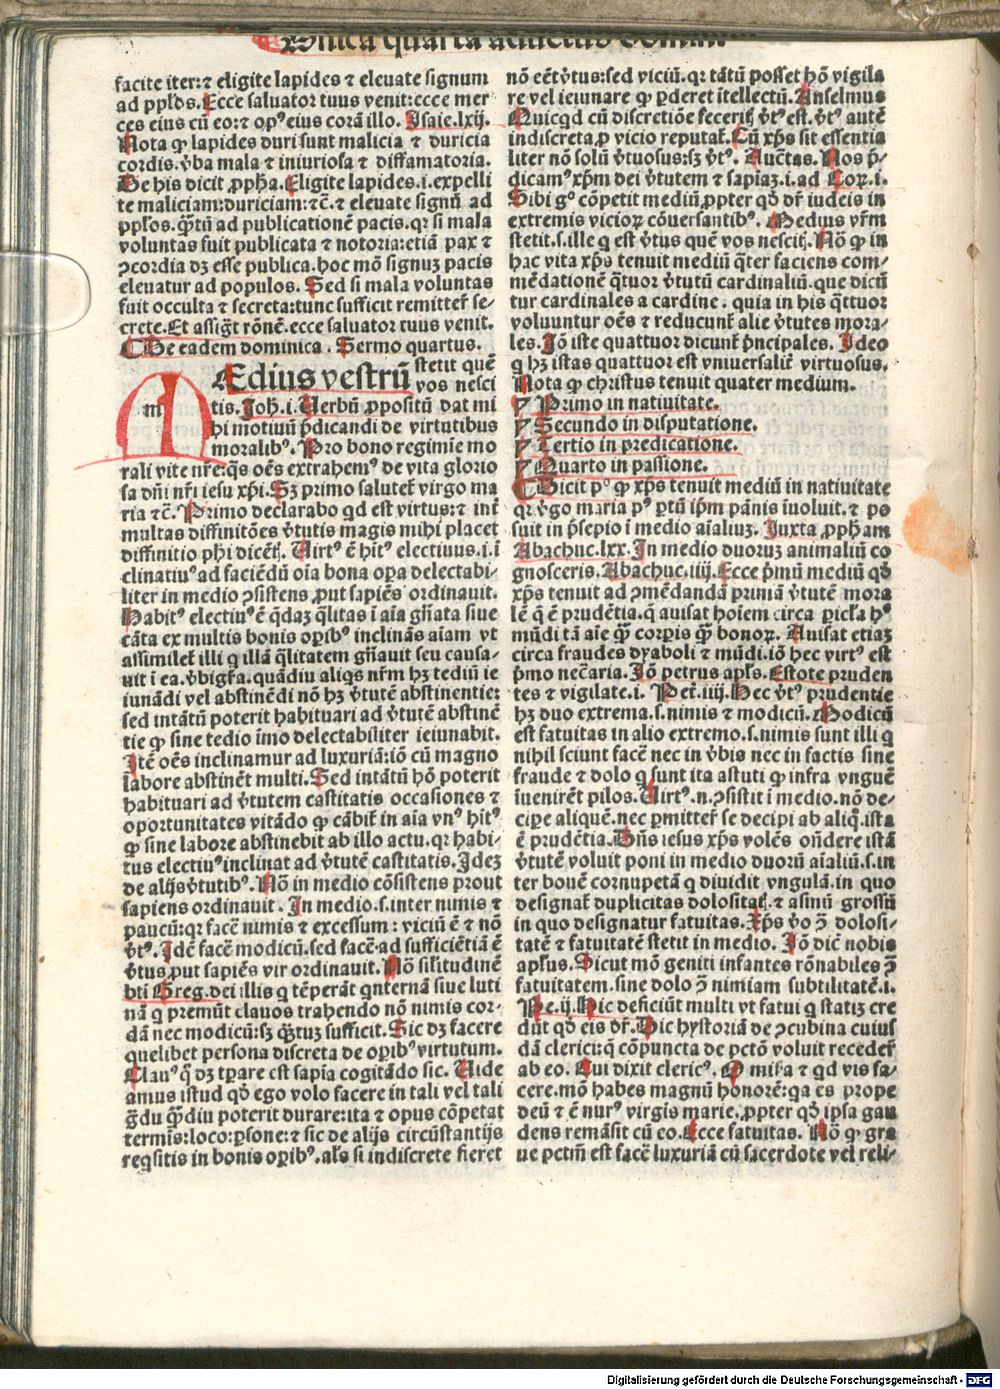 Dn̄ica quarta aduentus domini
facite iter: ⁊ eligite lapides ⁊ eleuate signum
ad ppl̄os. Ecce saluator tuus venit: ecce mer
ces eius cū eo: ⁊ opꝰ eius corā illo. Isaie. lxij.
Nota ꝙ lapides duri sunt malicia ⁊ duricia
cordis. v̄ba mala ⁊ iniuriosa ⁊ diffamatoria.
De his dicit ꝓph̄a. Eligite lapides .i. expelli
te maliciam: duriciam: ⁊c̄. ⁊ eleuate signū ad
pplōs. q̄tū ad publicationē pacis. qꝛ si mala
voluntas fuit publicata ⁊ notoria: etiā pax ⁊
ꝯcordia dꝫ esse publica. hoc mō signuꝫ pacis
eleuatur ad populos. Sed si mala voluntas
fuit occulta ⁊ secreta: tunc sufficit remitter̄ se-
crete. Et assigt̄ rōnē. ecce saluator tuus venit.
¶ De eadem dominica. Sermo quartus.
MEdius vestrū stetit quē
vos nesci
m
tis. Joh̄. i. Verbū ꝓpositū dat mi
hi motiuū p̄dicandi de virtutibus
moralibꝰ. Pro bono regimie mo
rali vite nr̄e: q̄s oēs extrahemꝰ de vita glorio
sa dn̄i nr̄i iesu xp̄i. Sꝫ primo salutet̄ virgo ma
ria ⁊c̄. Primo declarabo qd est virtus: ⁊ int̄
multas diffinitōes v̄tutis magis mihi placet
diffinitio ph̄i dicēt̄. Virtꝰ ē hītꝰ electiuus .i. ī
clinatiuꝰ ad faciēdū oīa bona oꝑa delectabi-
liter in medio ꝯsistens ꝓut sapiēs ordinauit.
Habitꝰ electiuꝰ ē q̄daꝫ q̄litas ī aīa gn̄ata siue
cāta ex multis bonis oꝑibꝰ inclinās aīam vt
assimilet̄ illi q illā q̄litatem gn̄auit seu causa-
uit ī ea. v̄bigr̄a. quādiu aliqs nr̄m hꝫ tediū ie
iunādi vel abstinēdi nō hꝫ v̄tutē abstinentie:
sed intātū poterit habituari ad v̄tutē abstinē
tie ꝙ sine tedio īmo delectabiliter ieiunabit.
Itē oēs inclinamur ad luxuriā: iō cū magno
labore abstinēt multi. Sed intātū hō poterit
habituari ad v̄tutem castitatis occasiones ⁊
oportunitates vitādo ꝙ cābit̄ in aīa vnꝰ hītꝰ
ꝙ sine labore abstinebit ab illo actu. qꝛ habi-
tus electiuꝰ inclinat ad v̄tutē castitatis. Ideꝫ
de alijs v̄tutibꝰ. Nō in medio cōsistens prout
sapiens ordinauit. In medio .s. inter nimis ⁊
paucū: qꝛ facē nimis ⁊ excessum: viciū ē ⁊ nō
v̄tꝰ. Idē facē modicū. sed facē ad sufficiētiā ē
v̄tus ꝓut sapiēs vir ordinauit. Nō sil̄itudinē
bt̄i Greg. dei illis q tēperāt qnternā siue luti
nā q premūt clauos trahendo nō nimis cor-
dā nec modicū: sꝫ q̄tuꝫ sufficit. Sic dꝫ facere
quelibet persona discreta de oꝑibꝰ virtutum.
Clauꝰ q̄ dꝫ tꝑare est sapīa cogitādo sic. Uide
amus istud qd̄ ego volo facere in tali vel tali
gd̄u q̄diu poterit durare: ita ⁊ opus cōpetat
termīs: loco: ꝑsone: ⁊ sic de alijs circūstantijs
reqsitis in bonis oꝑibꝰ. al̄s si indiscrete fieret
nō eēt v̄tus: sed viciū. qꝛ tātū posset hō vigila
re vel ieiunare ꝙ ꝑderet ītellectū. Anselmus
Quicqd cū discretiōe fecerit̄ v̄tꝰ est. v̄tꝰ autē
indiscreta ꝓ vicio reputat̄. Cū xp̄s sit essentia
liter nō solū v̄tuosus: sꝫ v̄tꝰ. Auc̄tas. Nos p̄-
dicamꝰ xp̄m dei v̄tutem ⁊ sapīaꝫ .i. ad Coꝝ. i.
Sibi gͦ cōpetit mediū ꝓpter qd̄ dr̄ iudeis in
extremis vicioꝝ cōuersantibꝰ. Medius vr̄m
stetit .s. ille q est v̄tus quē vos nescit̄. Nō ꝙ in
hac vita xp̄s tenuit mediū q̄ter faciens com-
mēdationē q̄tuor v̄tutū cardinaliū. que dicū
tur cardinales a cardine. quia in his q̄ttuor
voluuntur oēs ⁊ reducunt̄ alie v̄tutes mora-
les. Iō iste quattuor dicunt̄ p̄ncipales. Ideo
q hꝫ istas quattuor est vniuersalit̄ virtuosus.
Nota ꝙ christus tenuit quater medium.
Primo in natiuitate.
Secundo in disputatione.
Tertio in predicatione.
Quarto in passione.
¶ Dicit pͦ ꝙ xp̄s tenuit mediū in natiuitate
qꝛ v̄go maria pꝰ ꝑtū ip̄m pānis īuoluit. ⁊ po
suit in p̄sepio ī medio aīaliuꝫ. Juxta ꝓph̄am
Abachuc. lxx. In medio duoruꝫ animaliū co
gnosceris. Abachuc. iiij. Ecce p̄mū mediū qd̄
xp̄s tenuit ad ꝯmēdandā primā v̄tutē mora
lē q̄ ē prudētia. q̄ auisat hoīem circa pericl̄a hꝰ
mūdi tā aīe q̄ corꝑis q̄ bonoꝝ. Auisat etiaꝫ
circa fraudes dyaboli ⁊ mūdi. iō hec virtꝰ est
p̄mo nec̄aria. Iō petrus apl̄s. Estote pruden
tes ⁊ vigilate .i. Pet̄. iiij. Hec v̄tꝰ prudentie
hꝫ duo extrema .s. nimis ⁊ modicū. Modicū
est fatuitas in alio extremo .s. nimis sunt illi q
nihil sciunt facē nec in v̄bis nec in factis sine
fraude ⁊ dolo q sunt ita astuti ꝙ infra vnguē
īuenirēt pilos. Virtꝰ .n. ꝯsistit ī medio. nō de-
cipe aliquē. nec ꝑmitter̄ se decipi ab aliq. ista
ē prudētia. Dn̄s iesus xp̄s volēs ondere istā
v̄tutē voluit poni in medio duorū aīaliū .s. in
ter bouē cornupetā q diuidit vngulā. in quo
designat̄ duplicitas dolositat̄. ⁊ asinū grossū
in quo designatur fatuitas. Xp̄s v̄o ꝯ̄ dolosi-
tatē ⁊ fatuitatē stetit in medio. Iō dic̄ nobis
apl̄us. Sicut mō geniti infantes rōnabiles ꝯ̄
fatuitatem. sine dolo ꝯ̄ nimiam subtilitatē .i.
Pe. ij. Hic deficiūt multi vt fatui q statiꝫ cre
dūt qd̄ eis dr̄. Hic hystoriā de ꝯcubina cuius
dā clerici: q̄ cōpuncta de pctō voluit receder̄
ab eo. Cui dixit clericꝰ. O mīra ⁊ qd vis fa-
cere. mō habes magnū honorē: qa es prope
deū ⁊ ē nurꝰ virgīs marie. ꝓpter qd̄ ip̄a gau
dens remāsit cū eo. Ecce fatuitas. Nō ꝙ gra
ue pctm̄ est facē luxuriā cū sacerdote vel reli-
Digitalisierung gefördert durch die Deutsche Forschungsgemeinschaft - DFG